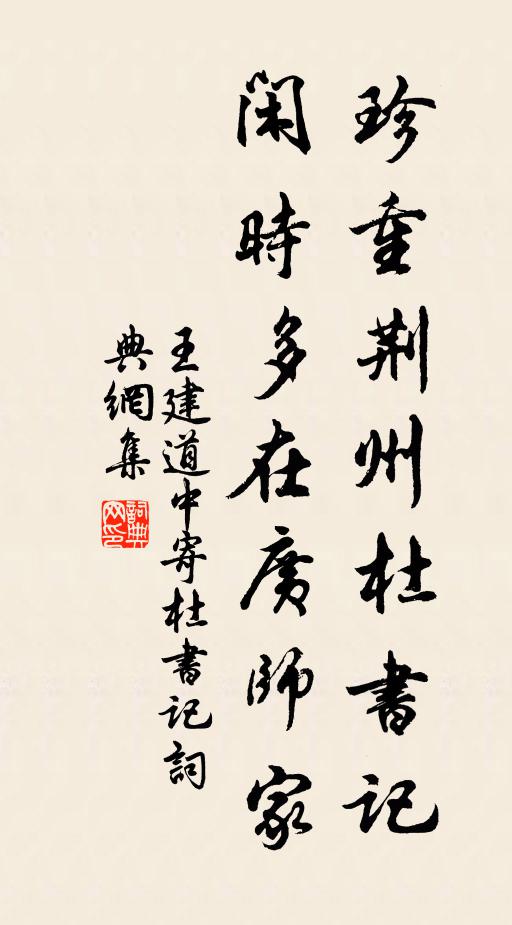 珍重荆州杜書記
閑時多在廣師家
王建道中寄杜書記詞
典網集
詞典
网印